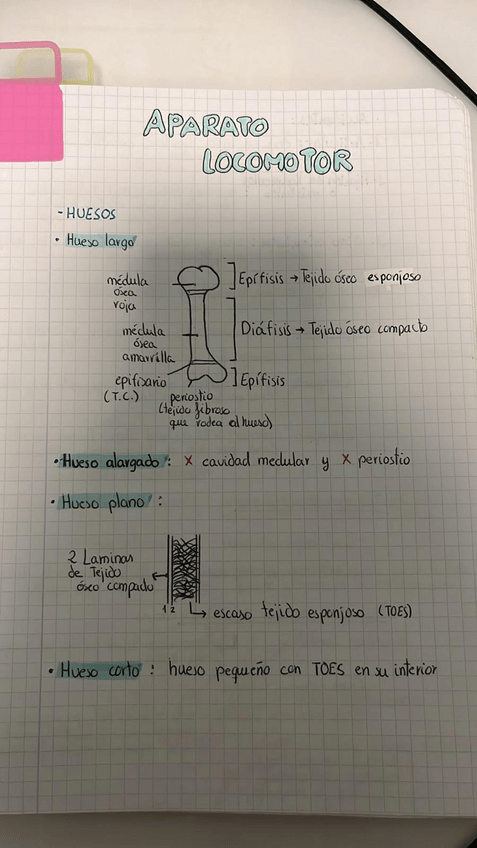 APARATO
LOCOMOTOR
- HUESOS
• Hueso largo
médula
ósea
roja
Epífisis → Tejido óseo esponjoso
médula
ósea
amarrilla
Diáfisis → Tejido óseo compacto
epifisario
(T.C.)
Epífisis
periostio
(tejido fibroso
que rodea al hueso)
• Hueso alargado : X cavidad medular y X periostio
• Hueso plano :
2 Laminas
de Tejido
óseo compacto
1 2
escaso tejido esponjoso (TOES)
• Hueso corto : hueso pequeño con TOES en su interior